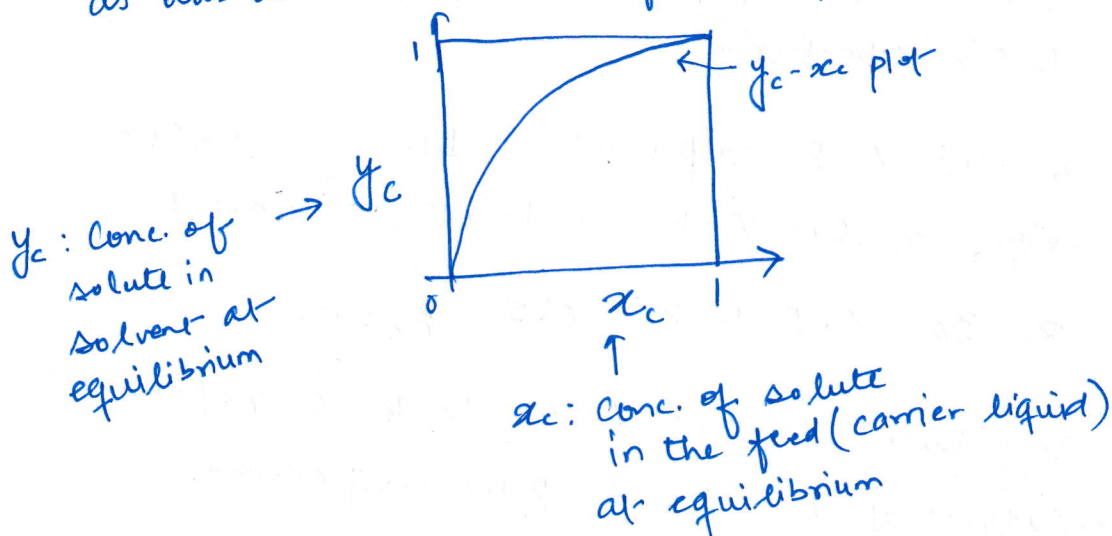 as
1
y_c-x_c plot
y_c
y_c : Conc. of →
solute in
solvent at
equilibrium
0
x_c
1
↑
x_c : conc. of solute
in the feed (carrier liquid)
at equilibrium